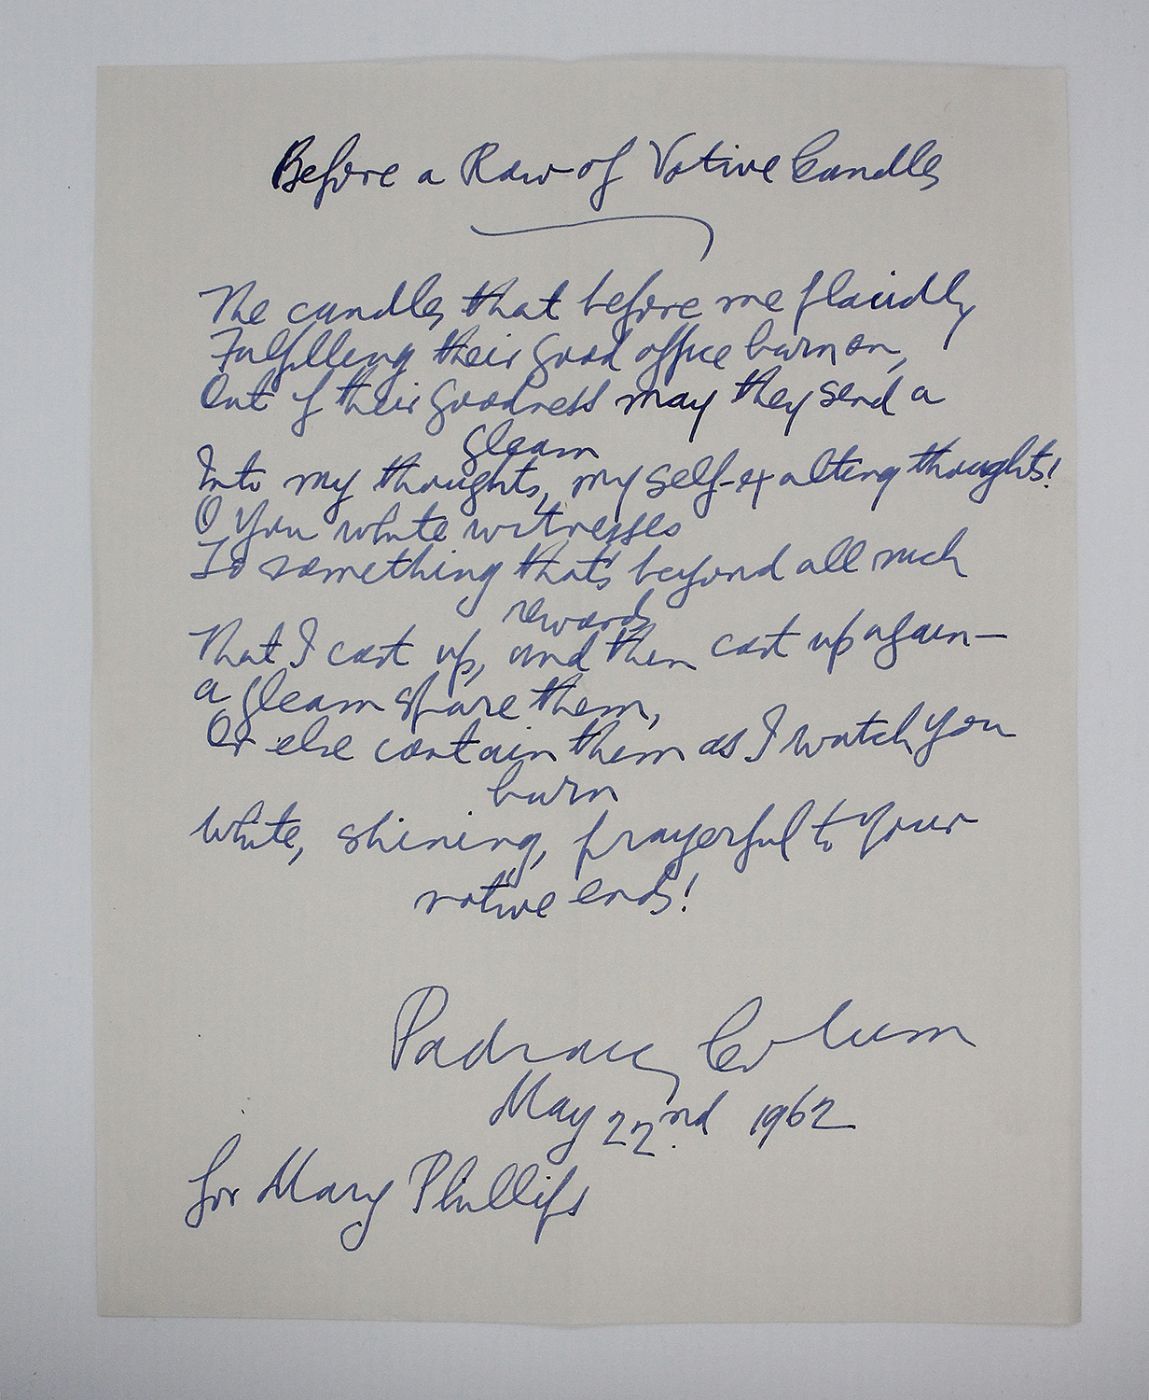 Before a Row of Votive Candles
The candles that before me placidly
Fulfilling their good office burn on,
Out of their goodness may they send a
gleam
Into my thoughts, my self-exalting thoughts!
O you white witnesses
To something that's beyond all such
rewards
That I cast up, and then cast up again—
a gleam spare them,
Or else contain them as I watch you
burn
White, shining, prayerful to your
votive ends!
Padraic Colum
May 22nd 1962
for Mary Phillips